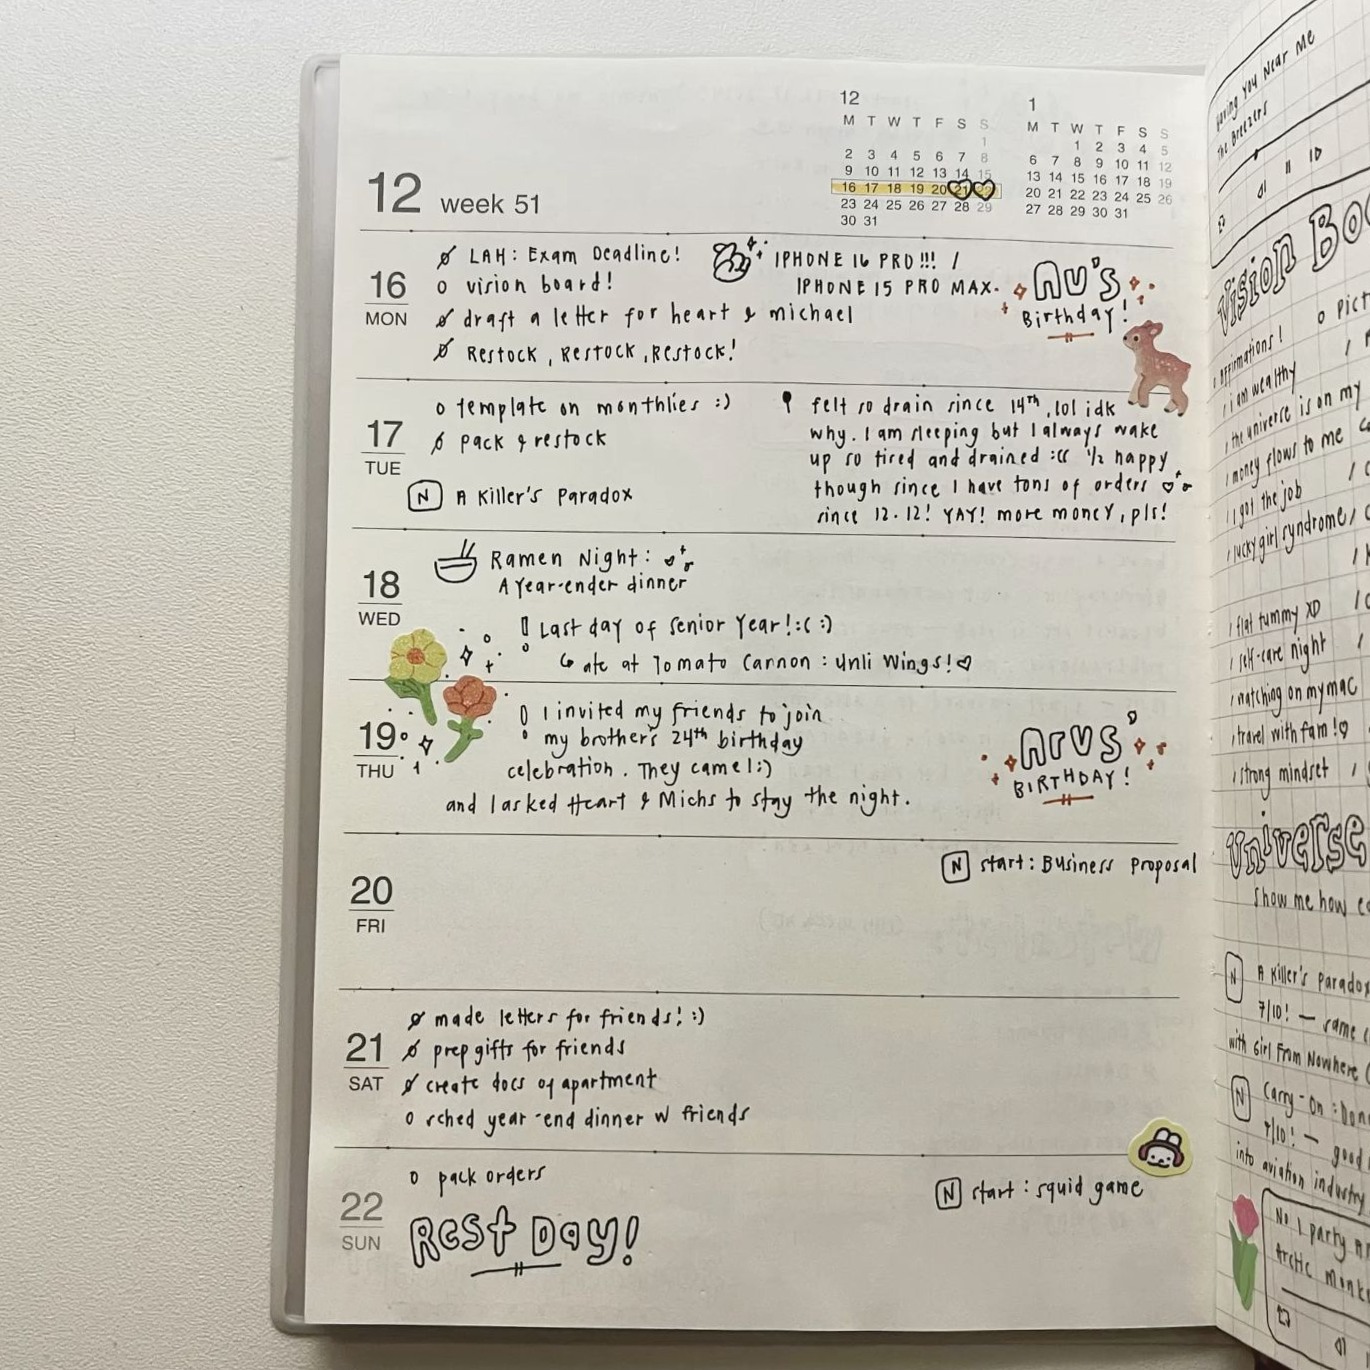 12 week 51
12
M T W T F S S
1
2 3 4 5 6 7 8
9 10 11 12 13 14 15
16 17 18 19 20 21 22
23 24 25 26 27 28 29
30 31
1
M T W T F S S
1 2 3 4 5
6 7 8 9 10 11 12
13 14 15 16 17 18 19
20 21 22 23 24 25 26
27 28 29 30 31
16
MON
LAH: Exam Deadline!
o vision board!
draft a letter for heart & michael
Restock, Restock, Restock!
IPHONE 16 PRO!!! /
IPHONE 15 PRO MAX.
Nu's
Birthday!
17
TUE
o template on monthlies :)
pack & restock
N A Killer's Paradox
felt so drain since 14th, lol idk
why. I am sleeping but I always wake
up so tired and drained :(( 1/2 happy
though since I have tons of orders
since 12.12! YAY! more money, pls!
18
WED
Ramen Night:
A Year-ender dinner
Last day of senior year!:( :)
ate at Tomato Cannon: Unli Wings!♡
19
THU
I invited my friends to join
my brother's 24th birthday
celebration. They came!:)
and I asked Heart & Michs to stay the night.
Arvs
BIRTHDAY!
20
FRI
N start: Business Proposal
21
SAT
made letters for friends! :)
prep gifts for friends
create docs of apartment
o sched year-end dinner w friends
22
SUN
o pack orders
Rest Day!
N start: squid game
Having You Near Me
The Breezers
Vision
o affirmations!
/ i am wealthy
/ the universe is on my
/ money flows to me
/ I got the job
/ lucky girl syndrome
/ flat tummy XD
/ self-care night
/ watching on my mac
/ travel with fam!♡
/ strong mindset
Universe
Show me how
N A Killer's Paradox
7/10! — same
with Girl From Nowhere
N Carry-On:
7/10! — good
into aviation industry
No 1 party
Arctic